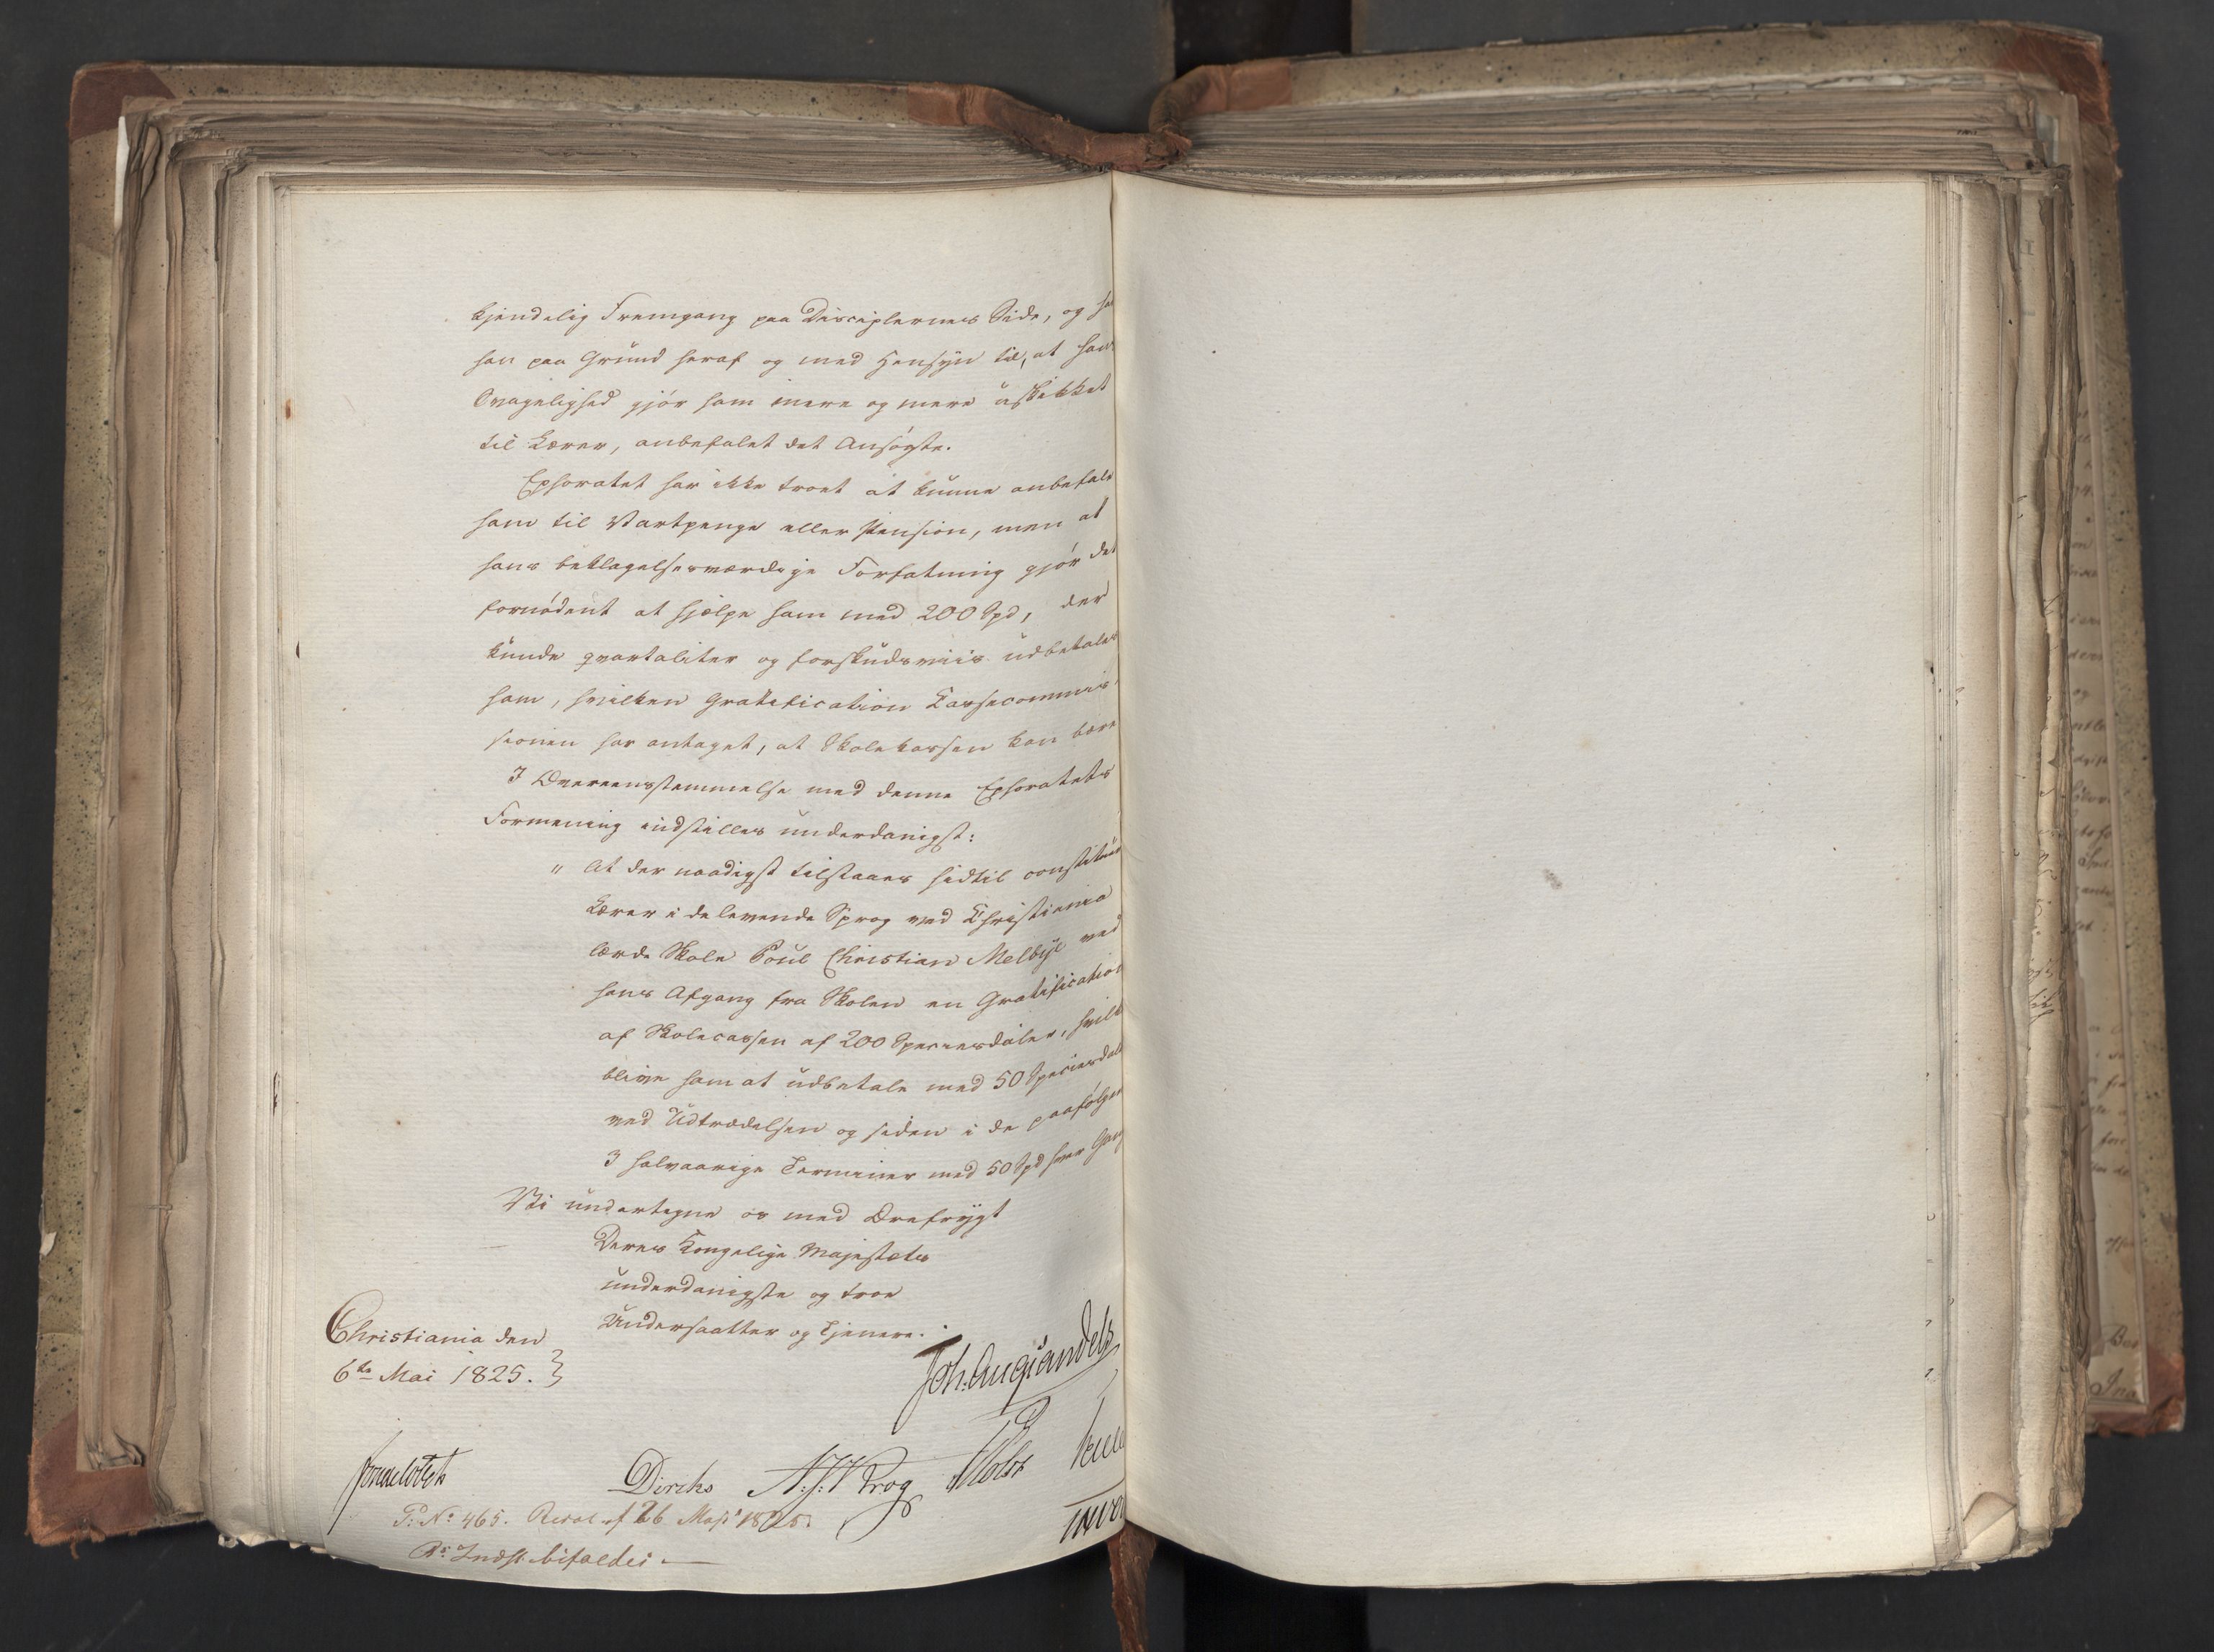 kjendelig Fremgang paa Disciplernes Side, og har
han paa Grund heraf og med Hensyn til, at hans
Svagelighed gjør ham mere og mere uskikket
til Lærer, anbefalet det Ansøgte.
Ephoratet har ikke troet at kunne anbefale
ham til Vartpenge eller Pension, men at
hans beklagelsesværdige Forfatning gjør det
fornødent at hjælpe ham med 200 Spd, der
kunde qvartaliter og forskudsviis udbetales
ham, hvilken Gratification Cassecommis-
sionen har antaget, at Skolekassen kan bære
I Overeensstemmelse med denne Ephoratets
Formening indstilles underdanigst:
" At der naadigst tilstaaes hidtil constitueret
Lærer i de levende Sprog ved Christiania
lærde Skole Poul Christian Melbye ved
hans Afgang fra Skolen en Gratification
af Skolecassen af 200 Speciesdaler, hvilke
blive ham at udbetale med 50 Speciesdaler
ved Udtrædelsen og siden i de paafølgende
3 halvaarige Terminer med 50 Spd hver Gang
Vi undertegne os med Ærefrygt
Deres Kongelige Majestæts
underdanigste og troe
Undersaatter og Tjenere.
Christiania den
6te Mai 1825.
Joh: Aug: Sandels
Sommerfeldt Diriks A. J. V Krog Holst
P: No 465. Resol. af 26 Maji 1825.
Rs: Indst. bifaldes.